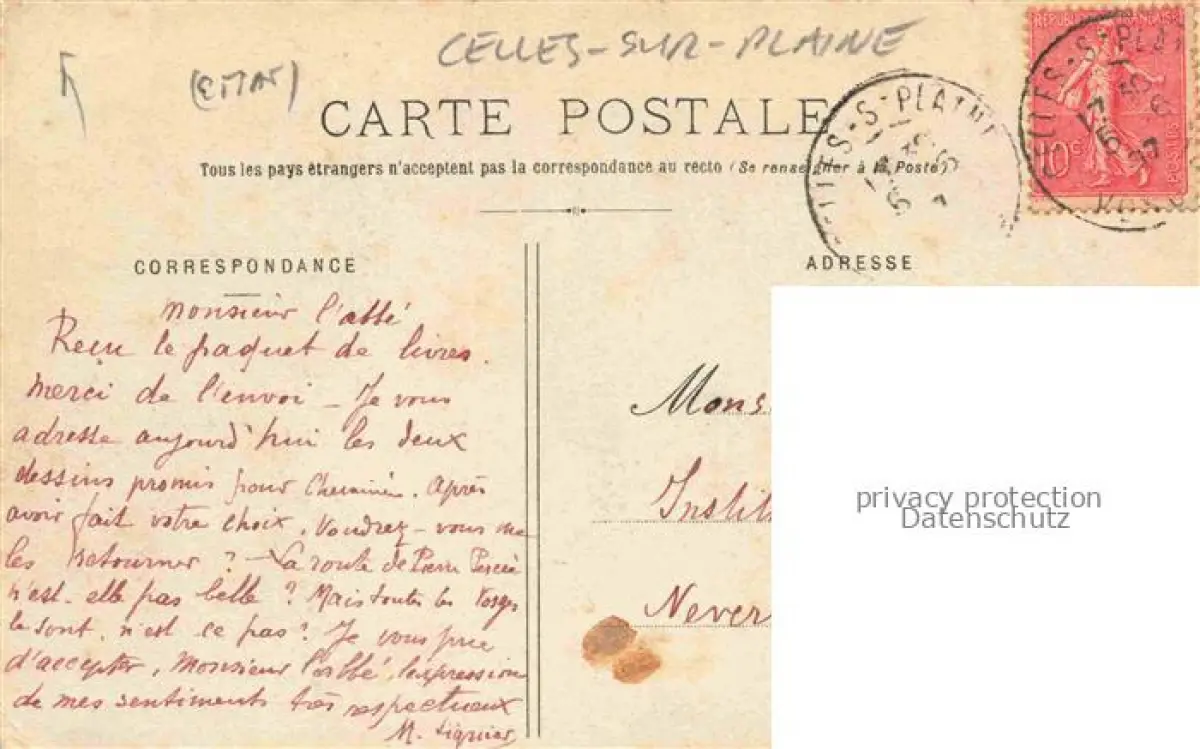 CELLES-SUR-PLAINE
CARTE POSTALE
Tous les pays étrangers n'acceptent pas la correspondance au recto (Se renseigner à la Poste)
RÉPUBLIQUE FRANÇAISE
10c
POSTES
CELLES-S-PLAINE
CORRESPONDANCE
Monsieur l'abbé
Reçu le paquet de livres.
Merci de l'envoi - Je vous
adresse aujourd'hui les deux
dessins promis pour Cheminée. Après
avoir fait votre choix, Voudrez-vous me
les retourner ? - La route de Pierre Percée
n'est-elle pas belle ? Mais toutes les Vosges
le sont, n'est ce pas ? Je vous prie
d'accepter, Monsieur l'abbé, l'expression
de mes sentiments très respectueux
M.
ADRESSE
Mons
Instit
Never
privacy protection
Datenschutz